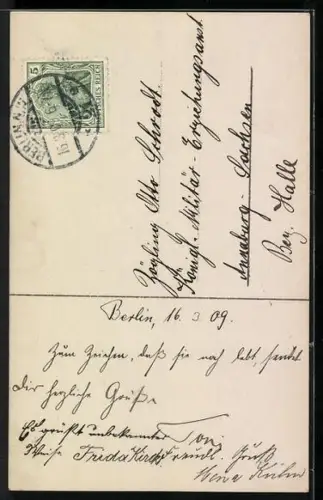 5
DEUTSCHES REICH
BERLIN
Zögling Otto Schrodt
Königl. Militär-Erziehungsanst.
Annaburg-Sachsen
Bez. Halle
Berlin, 16. 3. 09.
Zum Zeichen, daß sie noch lebt, sendet
Dir herzliche Grüße
Es grüßt unbekannter Toni
Weise Frieda Freundl. Gruß